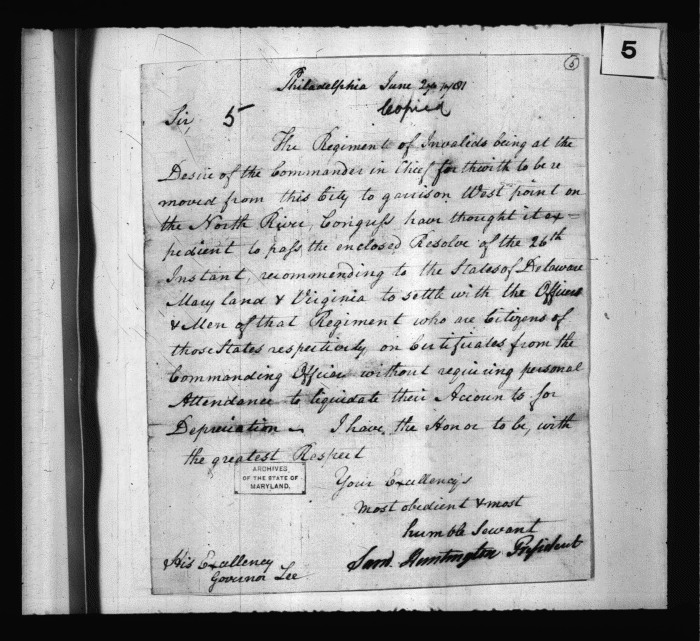 5
5
Philadelphia June 1781
Copied
Sir, 5
The Regiment of Invalids being at the
Desire of the Commander in Chief forthwith to be re
moved from this City to garrison West point on
the North River, Congress have thought it ex=
pedient to pass the enclosed Resolve of the 26th
Instant, recommending to the States of Delaware
Maryland & Virginia to settle with the Officers
& Men of that Regiment who are Citizens of
those States respectively on Certificates from the
Commanding Officer without requiring personal
Attendance to liquidate their Accounts for
Depreciation ~ I have the Honor to be, with
the greatest Respect
ARCHIVES
OF THE STATE OF
MARYLAND.
Your Excellency's
most obedient & most
humble Servant
Sam. Huntington President
His Excellency
Governor Lee